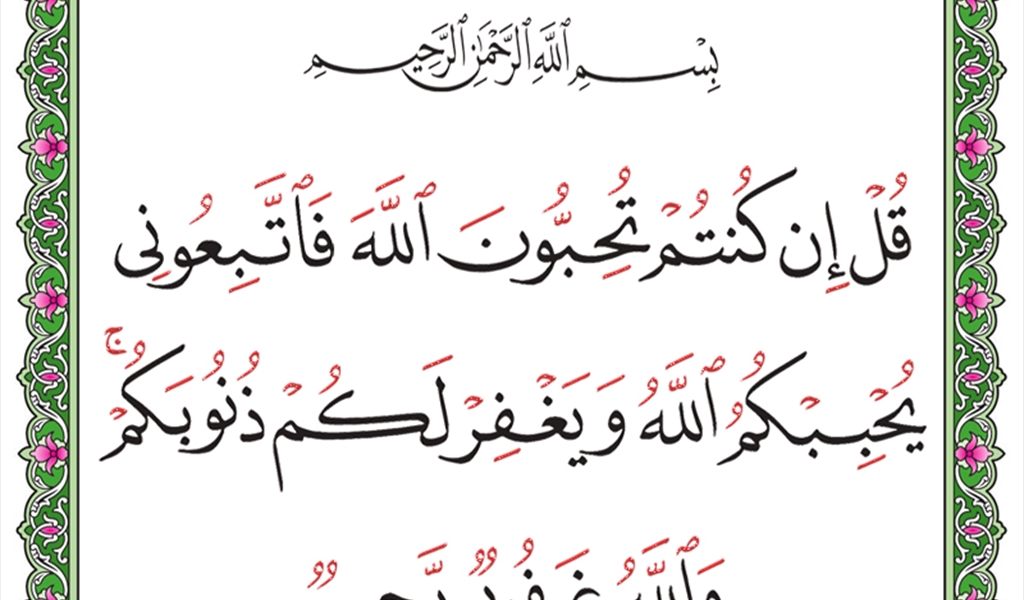 بِسْمِ ٱللَّهِ ٱلرَّحْمَٰنِ ٱلرَّحِيمِ
قُلْ إِن كُنتُمْ تُحِبُّونَ ٱللَّهَ فَٱتَّبِعُونِى
يُحْبِبْكُمُ ٱللَّهُ وَيَغْفِرْ لَكُمْ ذُنُوبَكُمْ ۚ
وَٱللَّهُ غَفُورٌ رَّحِيمٌ